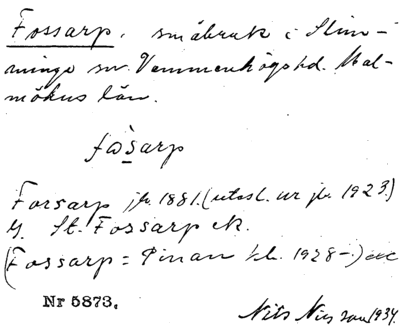 Fossarp. småbruk i Slim-
minge sn. Vemmenhögs hd. Mal-
möhus län.
fàsarp
Forsarp jb. 1881. (utesl. ur jb. 1923.)
G. St. Fossarp ek.
(Fossarp = Pinan kl. 1928-)
Nr 5873.
Nils 1934.